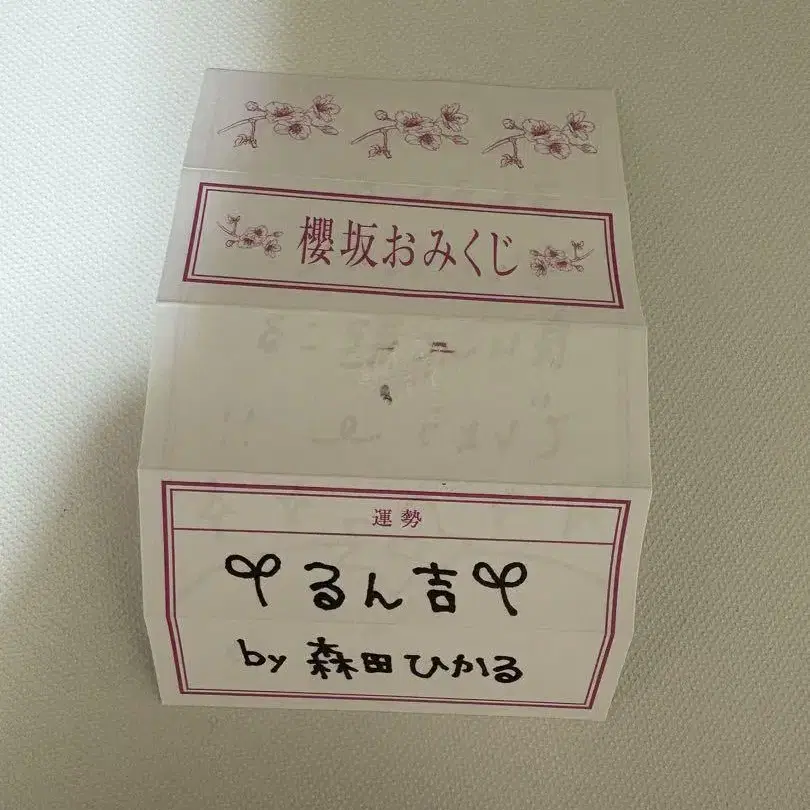 櫻坂おみくじ
運勢
るん吉
by 森田ひかる